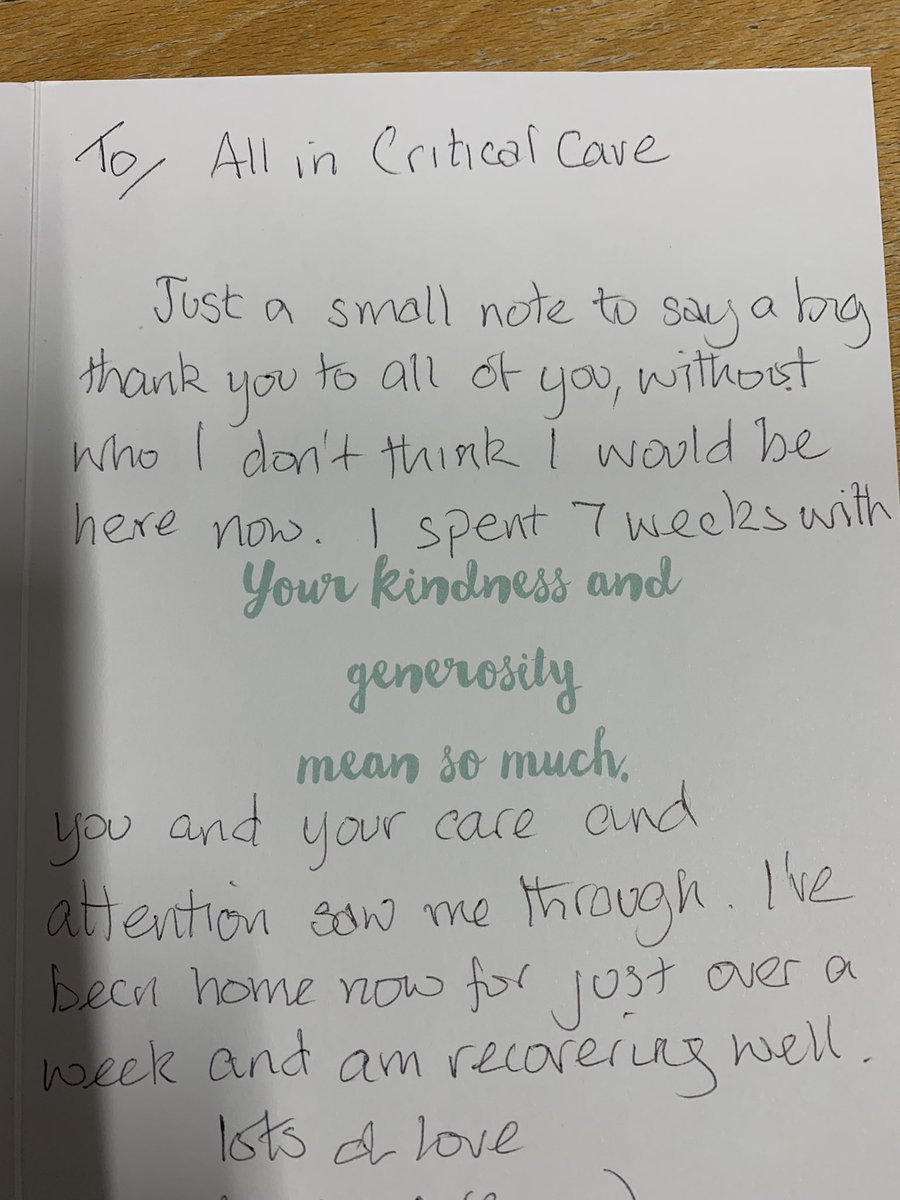 To/ All in Critical Care
Just a small note to say a big
thank you to all of you, without
who I don't think I would be
here now. I spent 7 weeks with
Your kindness and
generosity
mean so much.
you and your care and
attention saw me through. I've
been home now for just over a
week and am recovering well.
lots of love